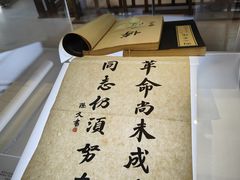 革命尚未成
同志仍須努
孫文書